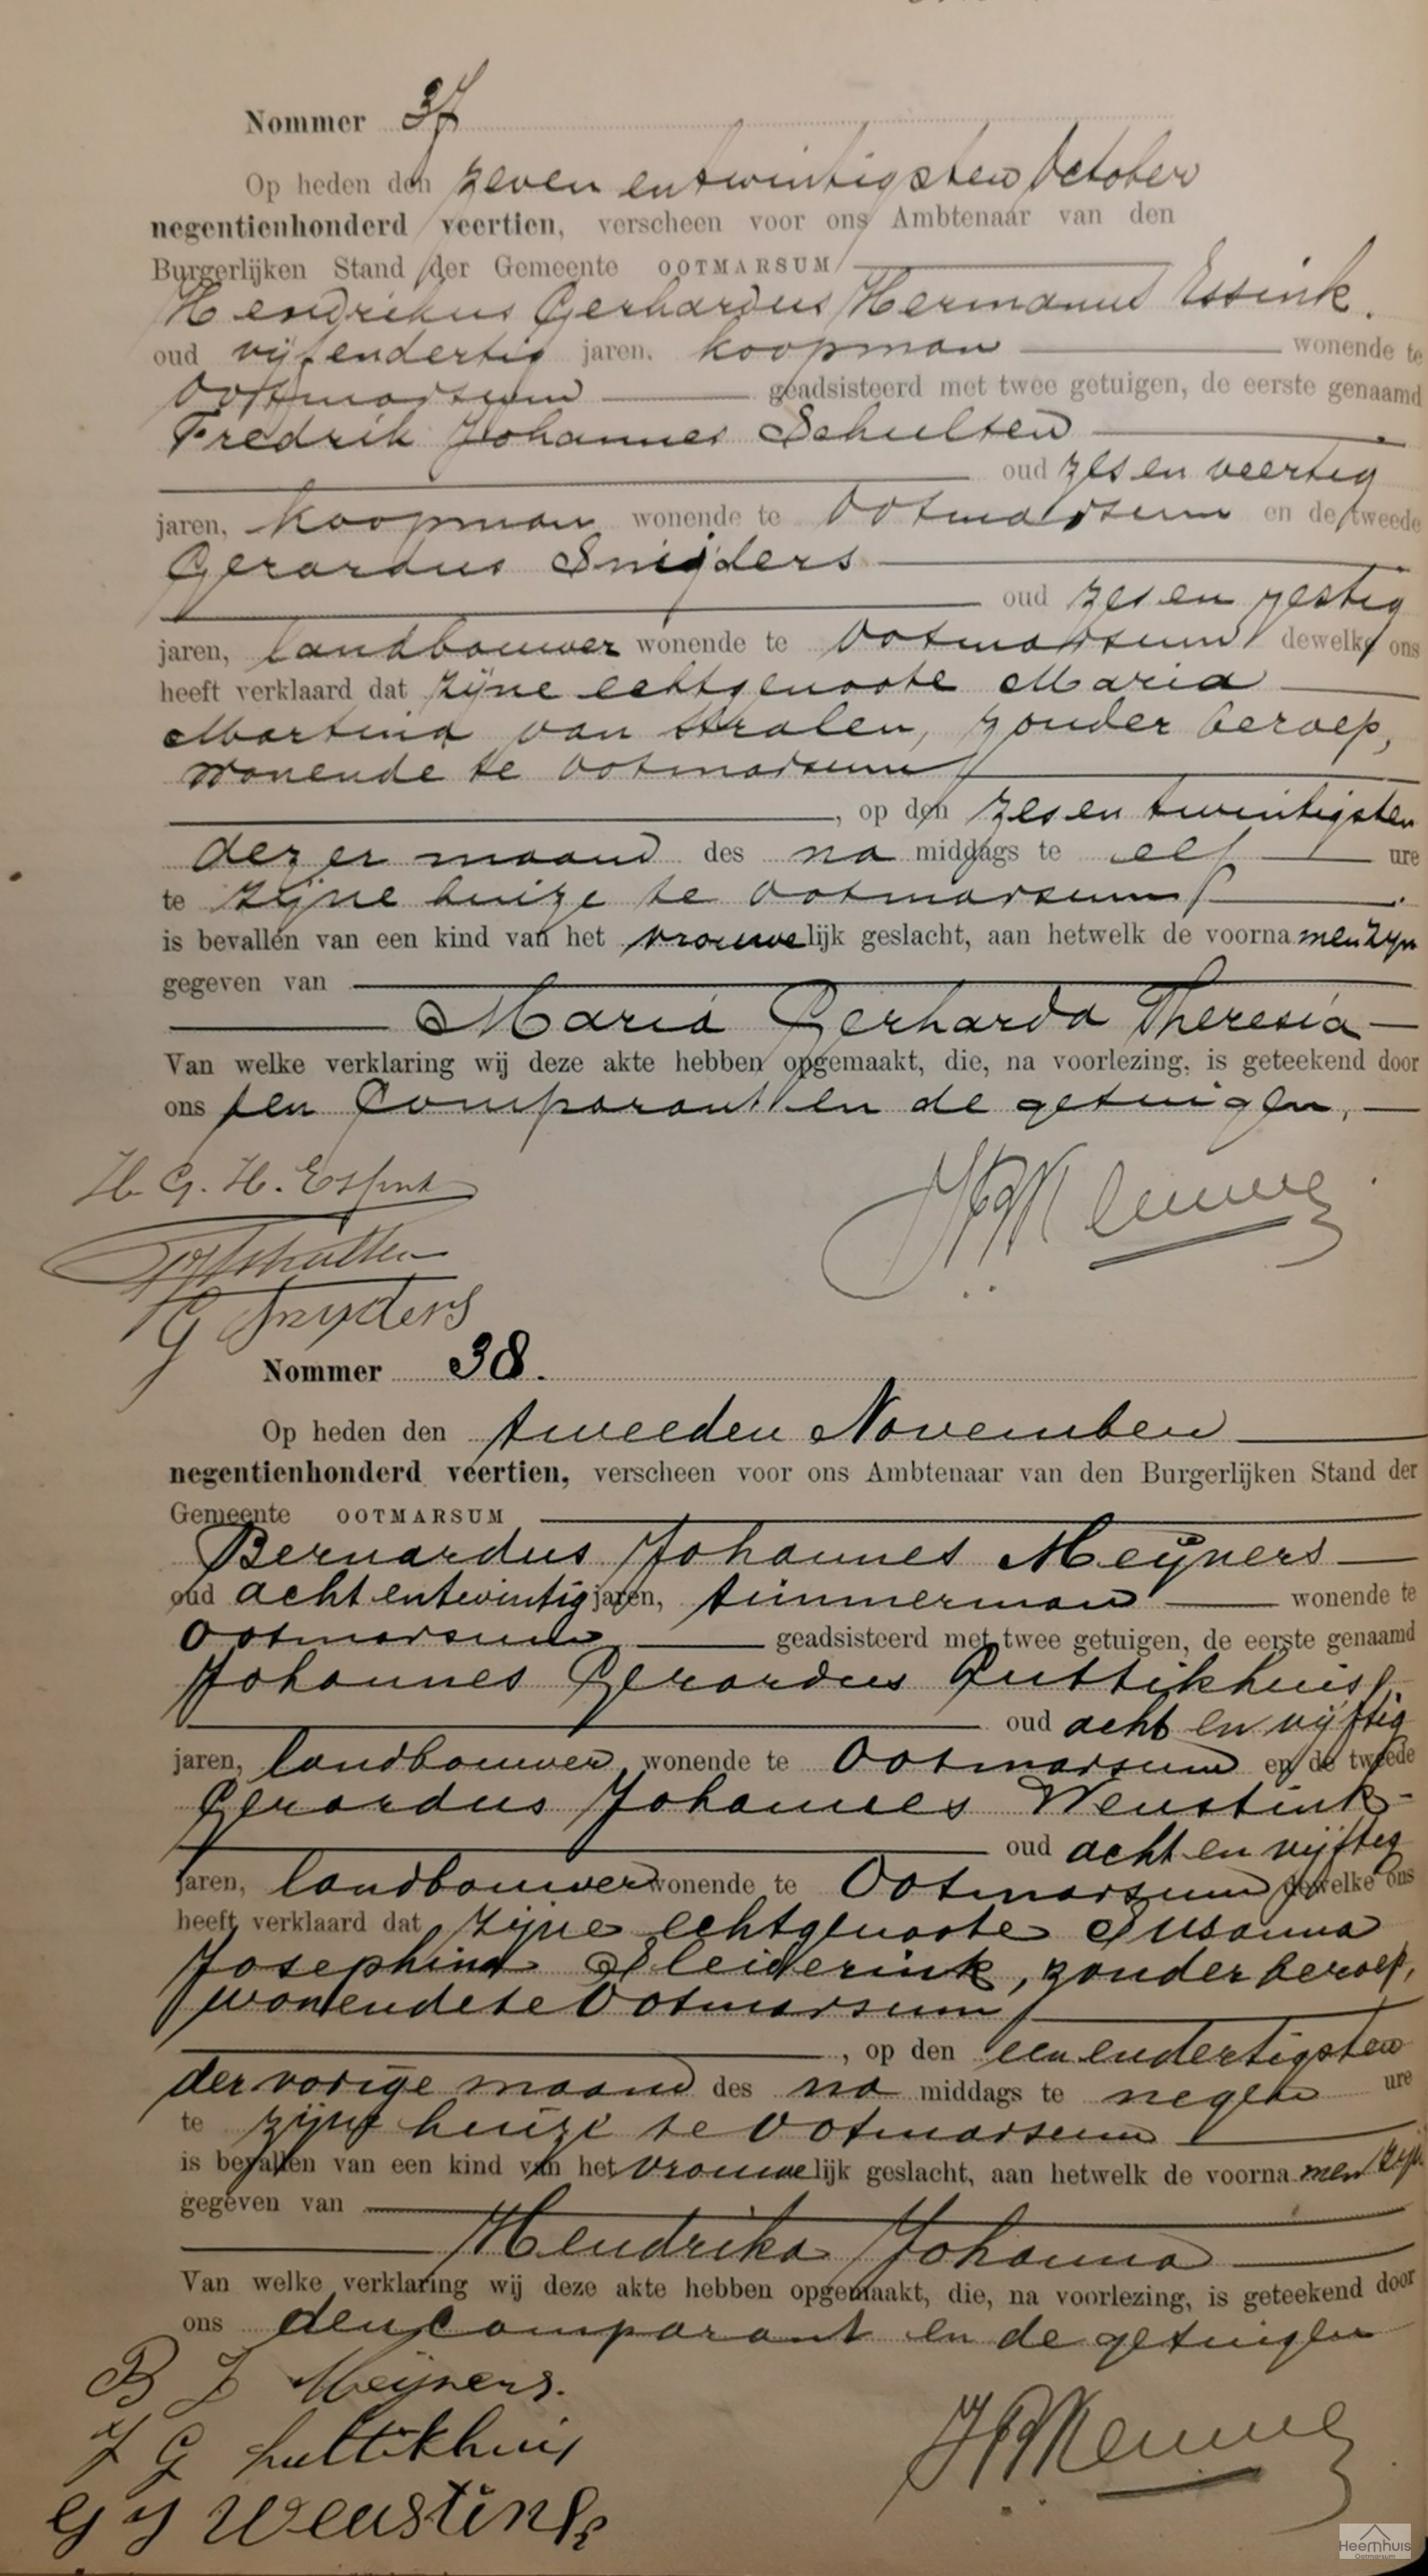 Nommer 37
Op heden den zeven en twintigsten October
negentienhonderd veertien, verscheen voor ons Ambtenaar van den
Burgerlijken Stand der Gemeente OOTMARSUM
Hendrikus Gerhardus Hermanus Essink.
oud vijfendertig jaren, koopman wonende te
Ootmarsum geadsisteerd met twee getuigen, de eerste genaamd
Fredrik Johannes Schulten
oud zes en veertig
jaren, koopman wonende te Ootmarsum en de tweede
Gerardus Snijders
oud zes en zestig
jaren, landbouwer wonende te Ootmarsum dewelke ons
heeft verklaard dat zijne echtgenoote Maria
Martina van Stralen, zonder beroep,
wonende te Ootmarsum
, op den zes en twintigsten
dezer maand des na middags te elf ure
te zijne huize te Ootmarsum
is bevallen van een kind van het vrouwelijk geslacht, aan hetwelk de voorna men zijn
gegeven van
Maria Gerharda Theresia
Van welke verklaring wij deze akte hebben opgemaakt, die, na voorlezing, is geteekend door
ons den Comparant en de getuigen,
H. G. H. Essink
Schulten
G Snijders
Nommer 38.
Op heden den tweeden November
negentienhonderd veertien, verscheen voor ons Ambtenaar van den Burgerlijken Stand der
Gemeente OOTMARSUM
Bernardus Johannes Meijners
oud acht entwintig jaren, timmerman wonende te
Ootmarsum geadsisteerd met twee getuigen, de eerste genaamd
Johannes Gerardus Luttikhuis
oud acht en vijftig
jaren, landbouwer wonende te Ootmarsum en de tweede
Gerardus Johannes Weustink
oud acht en vijftig
jaren, landbouwer wonende te Ootmarsum dewelke ons
heeft verklaard dat zijne echtgenoote Susanna
Josephina Sleiderink, zonder beroep,
wonende te Ootmarsum
, op den een en dertigsten
der vorige maand des na middags te negen ure
te zijne huize te Ootmarsum
is bevallen van een kind van het vrouwelijk geslacht, aan hetwelk de voorna men zijn
gegeven van
Hendrika Johanna
Van welke verklaring wij deze akte hebben opgemaakt, die, na voorlezing, is geteekend door
ons den Comparant en de getuigen
B J Meijners.
J G Luttikhuis
G J Weustink
Heemhuis
Ootmarsum